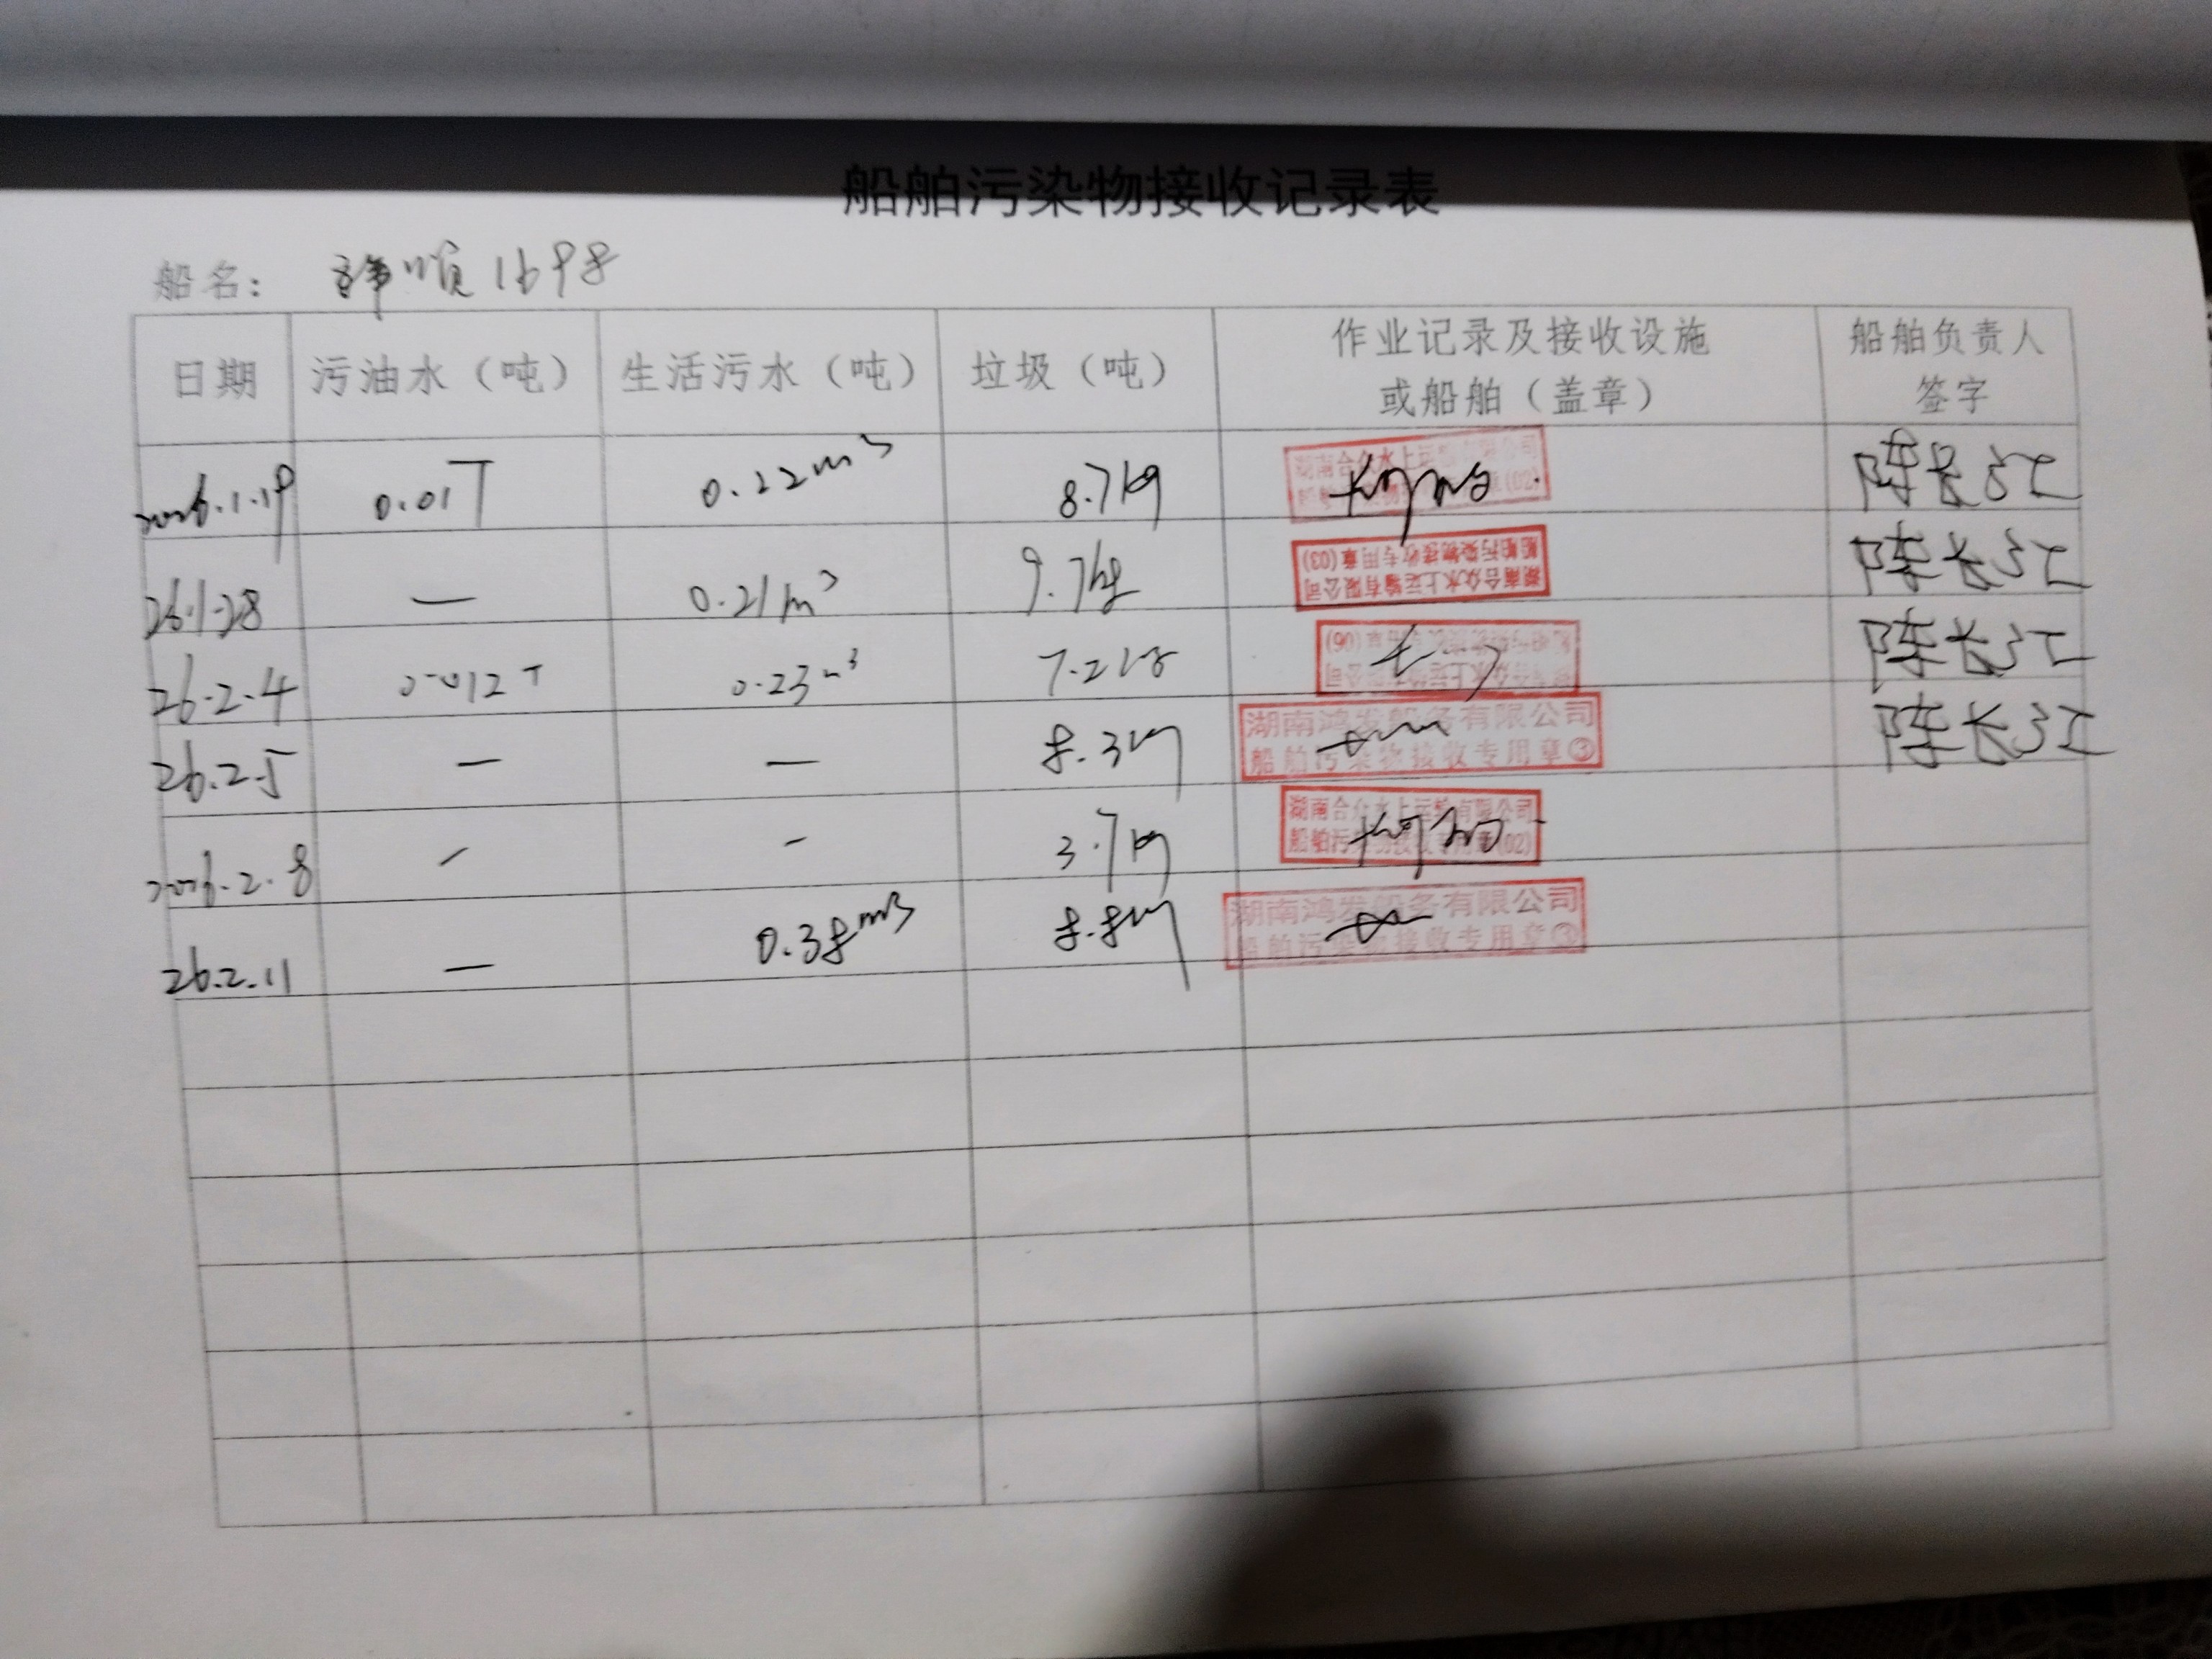 船舶污染物接收记录表
船名： 顺1698
日期 污油水（吨） 生活污水（吨） 垃圾（吨） 作业记录及接收设施或船舶（盖章） 船舶负责人签字
2026.1.19 0.01T 0.22m³ 8.7kg 湖南合众水上运输有限公司 陈长江
26.1.28 — 0.21m³ 9.7kg 湖南合众水上运输有限公司 船舶污染物接收专用章(03) 陈长江
26.2.4 0.012T 0.23m³ 7.2kg (06) 陈长江
26.2.5 — — 8.3kg 湖南鸿发船务有限公司 船舶污染物接收专用章③ 陈长江
2026.2.8 - - 3.7kg 湖南合众水上运输有限公司 船舶污染物接收专用章(02)
26.2.11 — 0.38m3 8.8kg 湖南鸿发船务有限公司 船舶污染物接收专用章③